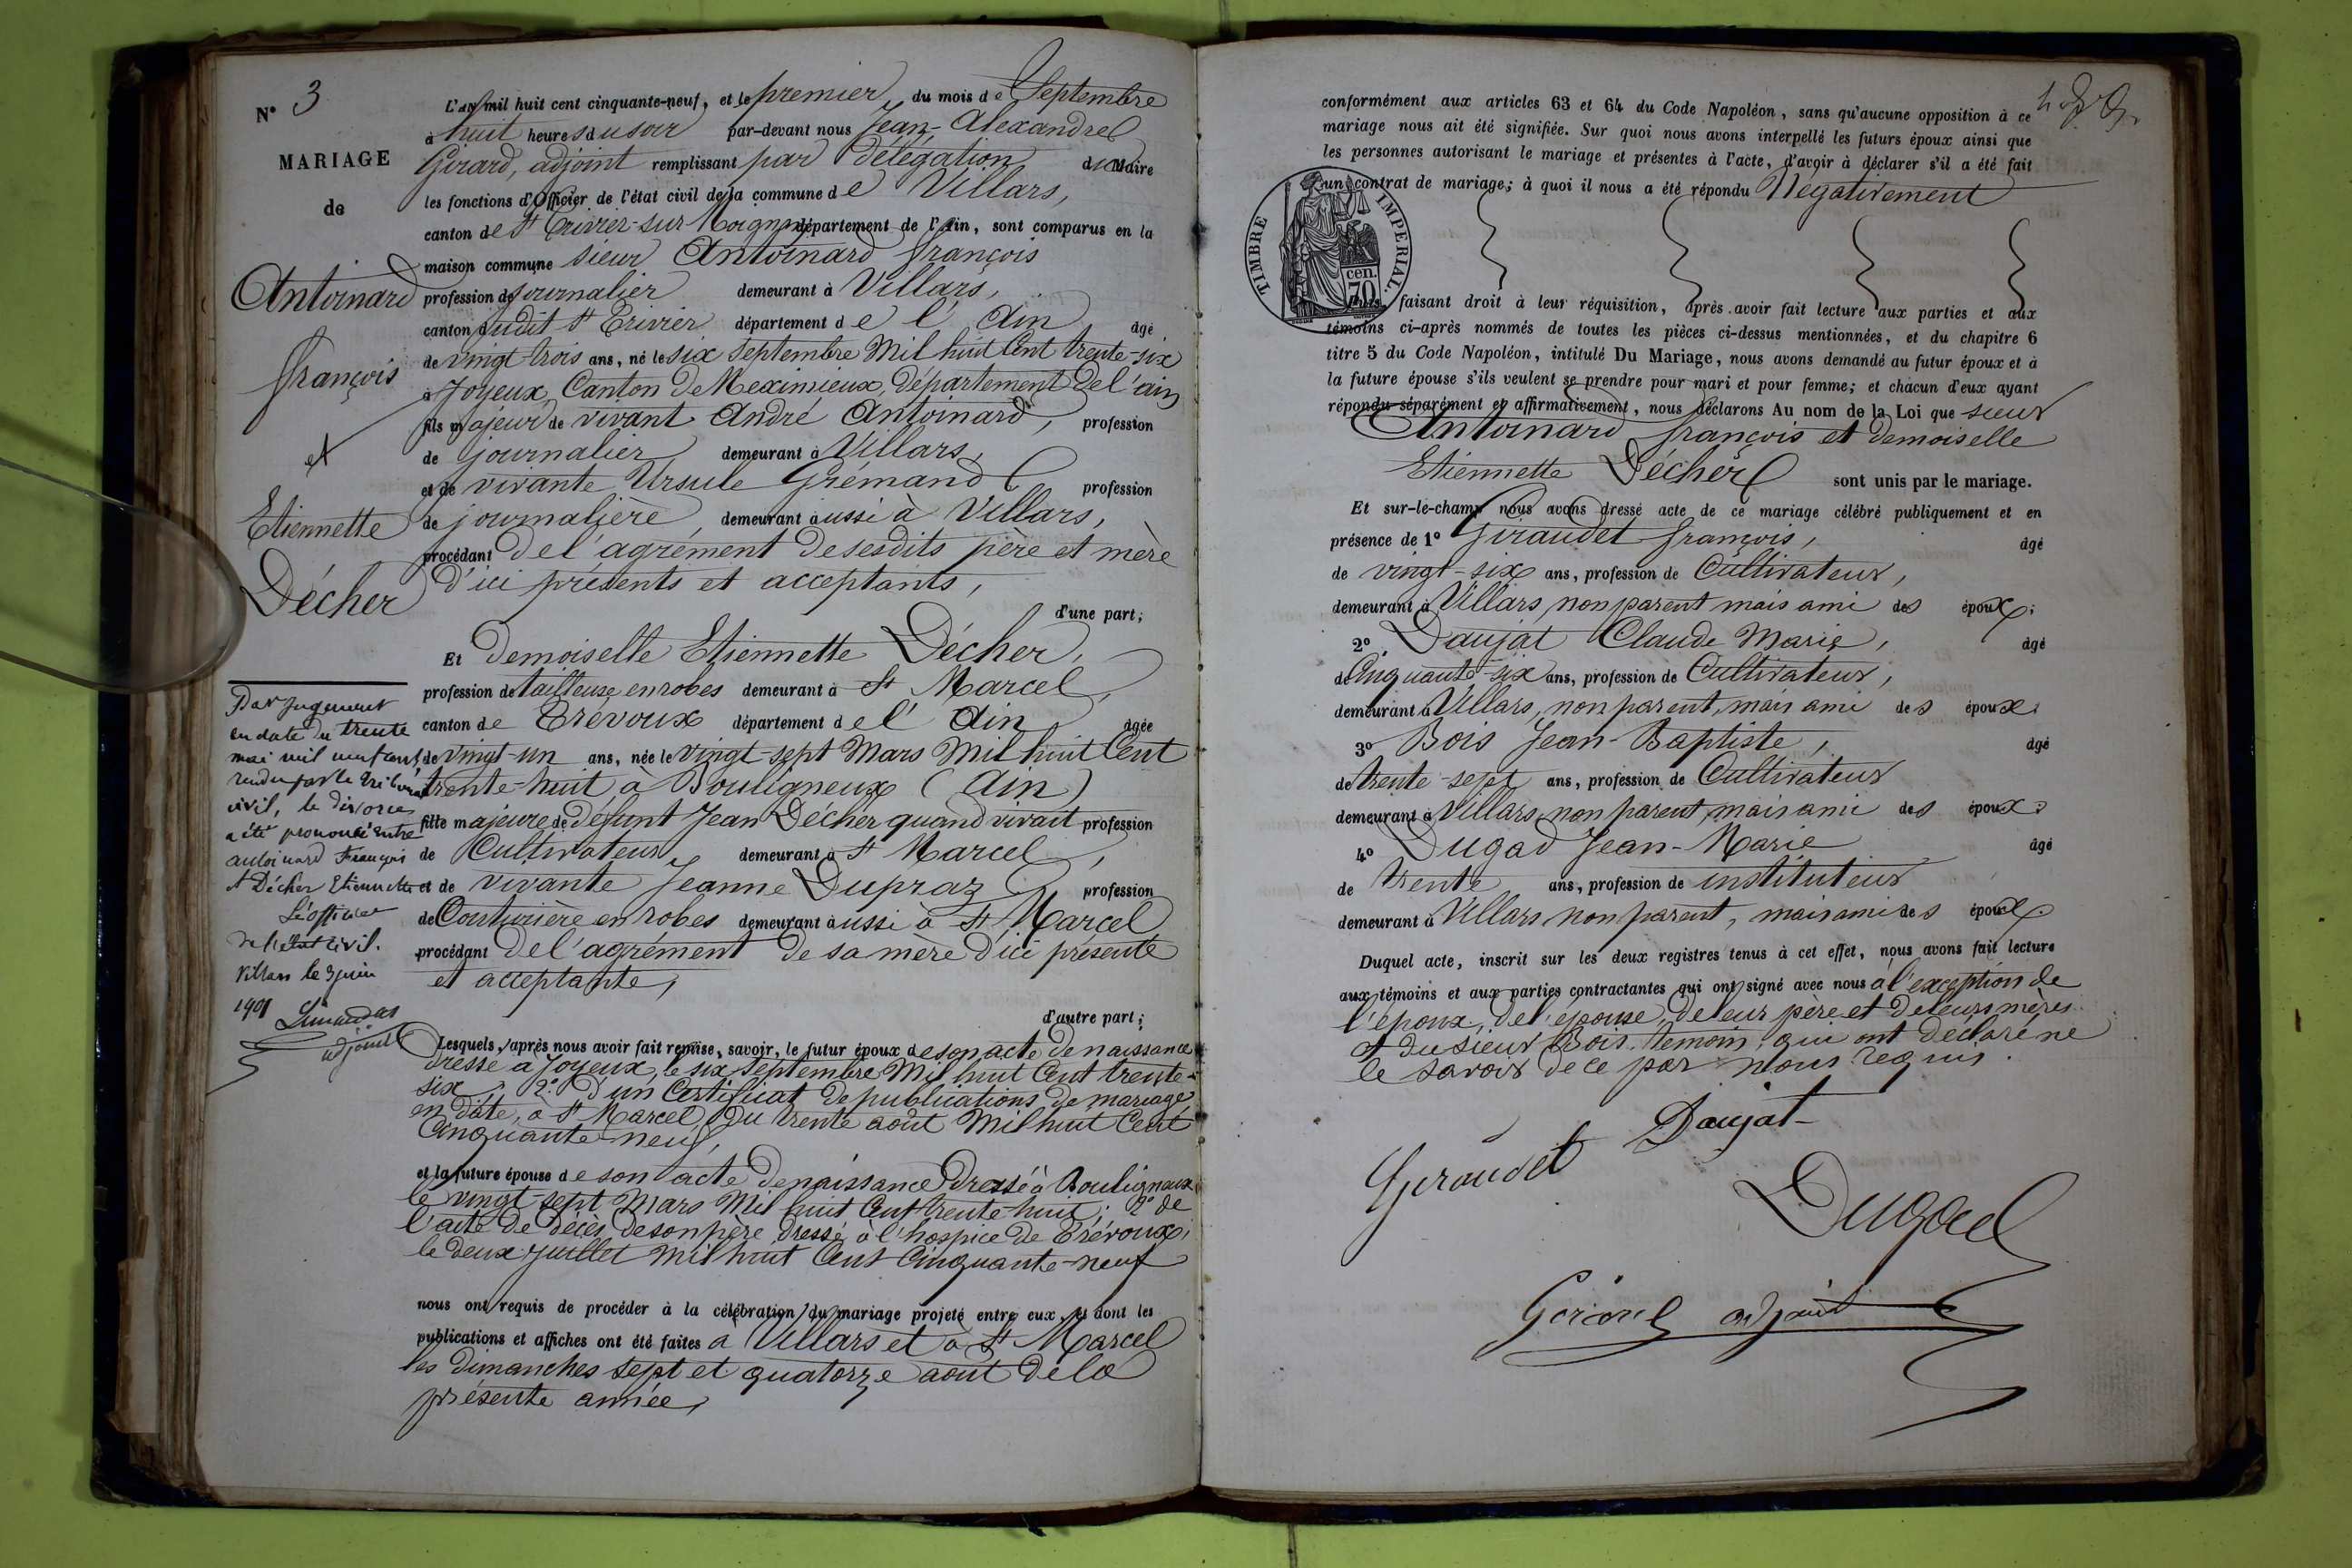 N° 3
MARIAGE
de
Antoinard
François
et
Etiennette
Décher
Par jugement
en date du trente
mai mil neuf cent
rendu par le tribunal
civil, le divorce
a été prononcé entre
Antoinard François
et Décher Etiennette
L'officier
de l'état civil.
Villars le 3 juin
1901
adjoint
L'an mil huit cent cinquante-neuf, et le premier du mois de Septembre
à huit heures du soir par-devant nous Jean-Alexandre
Girard, adjoint remplissant par délégation du Maire
les fonctions d'Officier de l'état civil de la commune de Villars,
canton de St Trivier-sur-Moignans département de l'Ain, sont comparus en la
maison commune sieur Antoinard François
profession de journalier demeurant à Villars,
canton dudit St Trivier département de l'Ain âgé
de vingt-trois ans, né le six Septembre Mil huit Cent trente-six
à Joyeux, Canton de Meximieux, département de l'ain
fils majeur de vivant André Antoinard, profession
de journalier demeurant à Villars,
et de vivante Ursule Grémand profession
de journalière demeurant aussi à Villars,
procédant de l'agrément de sesdits père et mère
d'ici présents et acceptants,
d'une part;
Et demoiselle Etiennette Décher,
profession de tailleuse en robes demeurant à St Marcel,
canton de Trévoux département de l'Ain âgée
de vingt-un ans, née le vingt-sept Mars Mil huit Cent
trente-huit à Bouligneux (Ain)
fille majeure de défunt Jean Décher quand vivait profession
de Cultivateur demeurant à St Marcel,
et de vivante Jeanne Dupraz profession
de Couturière en robes demeurant aussi à St Marcel
procédant de l'agrément de sa mère d'ici présente
et acceptante,
d'autre part;
Lesquels, après nous avoir fait remise, savoir, le futur époux de son acte de naissance
dressé à Joyeux, le six Septembre Mil huit Cent trente-
six, 2° d'un Certificat de publications de mariage
en date, à St Marcel, du trente août Mil huit Cent
Cinquante-neuf,
et la future épouse de son acte de naissance dressé à Bouligneux
le vingt-sept Mars Mil huit Cent trente-huit; 2° de
l'acte de décès de son père, dressé à l'hospice de Trévoux,
le deux juillet Mil huit Cent Cinquante-neuf
nous ont requis de procéder à la célébration du mariage projeté entre eux, et dont les
publications et affiches ont été faites à Villars et à St Marcel
les dimanches sept et quatorze août de la
présente année,
conformément aux articles 63 et 64 du Code Napoléon, sans qu'aucune opposition à ce
mariage nous ait été signifiée. Sur quoi nous avons interpellé les futurs époux ainsi que
les personnes autorisant le mariage et présentes à l'acte, d'avoir à déclarer s'il a été fait
un contrat de mariage; à quoi il nous a été répondu Négativement
TIMBRE IMPERIAL.
cen.
70
Puis, faisant droit à leur réquisition, après avoir fait lecture aux parties et aux
témoins ci-après nommés de toutes les pièces ci-dessus mentionnées, et du chapitre 6
titre 5 du Code Napoléon, intitulé Du Mariage, nous avons demandé au futur époux et à
la future épouse s'ils veulent se prendre pour mari et pour femme; et chacun d'eux ayant
répondu séparément et affirmativement, nous déclarons Au nom de la Loi que sieur
Antoinard François et demoiselle
Etiennette Décher sont unis par le mariage.
Et sur-le-champ nous avons dressé acte de ce mariage célébré publiquement et en
présence de 1° Giraudet François, âgé
de vingt-six ans, profession de Cultivateur,
demeurant à Villars, non parent mais ami des époux;
2° Daujat Claude Marie, âgé
de Cinquante-six ans, profession de Cultivateur,
demeurant à Villars, non parent, mais ami des époux;
3° Bois Jean-Baptiste, âgé
de trente-sept ans, profession de Cultivateur
demeurant à Villars, non parent, mais ami des époux;
4° Dugad Jean-Marie âgé
de trente ans, profession de instituteur
demeurant à Villars non parent, mais ami des époux.
Duquel acte, inscrit sur les deux registres tenus à cet effet, nous avons fait lecture
aux témoins et aux parties contractantes qui ont signé avec nous à l'exception de
l'époux, de l'épouse, de leur père et de leurs mères
et du sieur Bois, témoin, qui ont déclaré ne
le savoir de ce par nous requis.
Daujat
Giraudet
Dugad
Girard adjoint